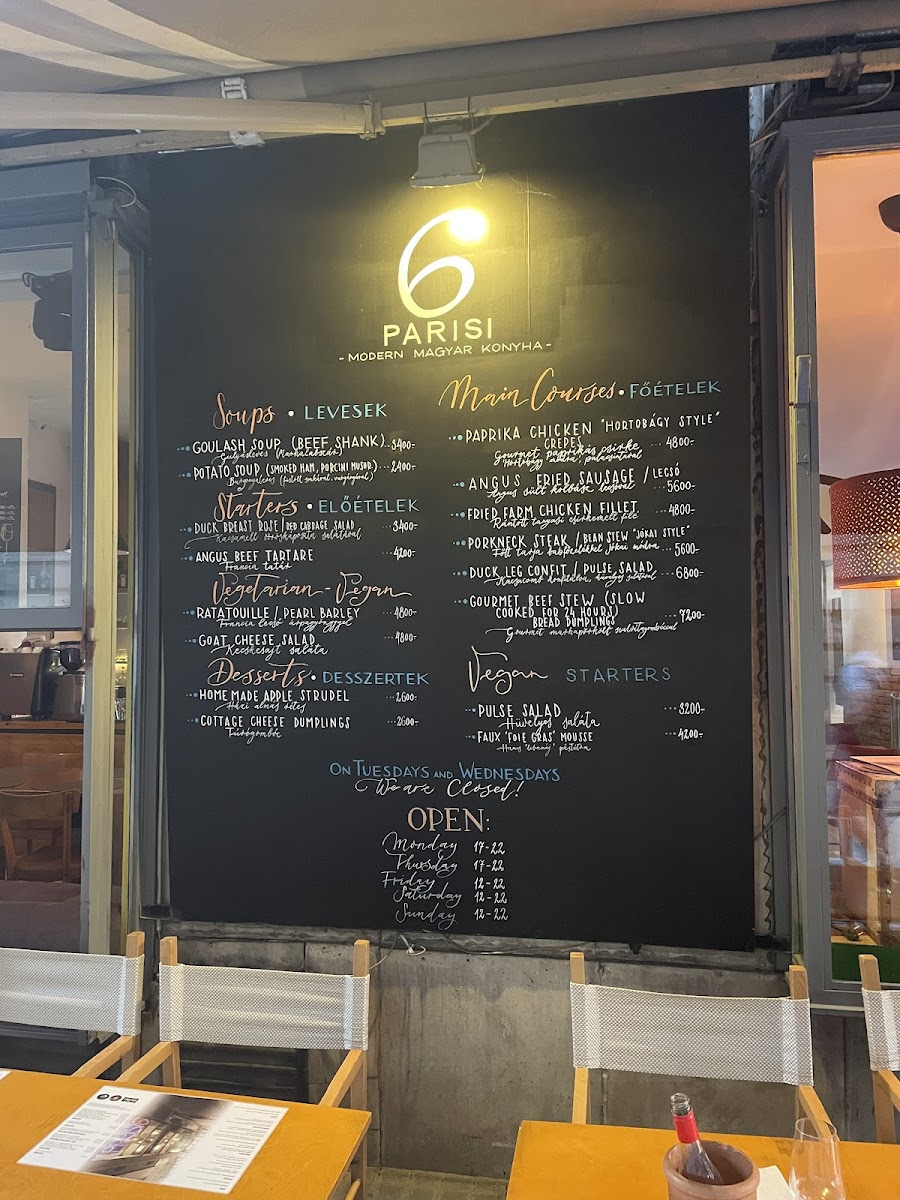 6
PARISI
- MODERN MAGYAR KONYHA -
Soups • LEVESEK
GOULASH SOUP (BEEF SHANK) 3400-
Gulyásleves (Marhalábszár)
POTATO SOUP (SMOKED HAM, PORCINI MUSHR.) 2400-
Burgonyaleves (füstölt sonkával, vargányával)
Starters • ELŐÉTELEK
DUCK BREAST ROSÉ / RED CABBAGE SALAD 3400-
Kacsamell vöröskáposzta salátával
ANGUS BEEF TARTARE 4200-
Francia tatár
Vegetarian - Vegan
RATATOUILLE / PEARL BARLEY 4800-
Francia lecsó árpagyönggyel
GOAT CHEESE SALAD 4800-
Kecskesajt saláta
Desserts • DESSZERTEK
HOME MADE APPLE STRUDEL 2600-
Házi almás rétes
COTTAGE CHEESE DUMPLINGS 2600-
Túrógombóc
Main Courses • FŐÉTELEK
PAPRIKA CHICKEN "HORTOBÁGY STYLE"
CREPES 4800-
Gourmet paprikás csirke
"Hortobágy" módra, palacsintával
ANGUS FRIED SAUSAGE / LECSÓ
Angus sült kolbász lecsóval 5600-
FRIED FARM CHICKEN FILLET 4800-
Rántott tanyasi csirkemell filé
PORKNECK STEAK / BEAN STEW "JÓKAI STYLE"
Főtt tarja babfőzelékkel Jókai módra 5600-
DUCK LEG CONFIT / PULSE SALAD 6800-
Kacsacomb konfitálva, hüvelyes salátával
GOURMET BEEF STEW (SLOW
COOKED FOR 24 HOURS)
BREAD DUMPLINGS 7200-
Gourmet marhapörkölt szalvétagombóccal
Vegan STARTERS
PULSE SALAD 3200-
Hüvelyes saláta
FAUX "FOIE GRAS" MOUSSE 4200-
Hamis "libamáj" pástétom
ON TUESDAYS AND WEDNESDAYS
We are Closed!
OPEN:
Monday 17-22
Thursday 17-22
Friday 12-22
Saturday 12-22
Sunday 12-22